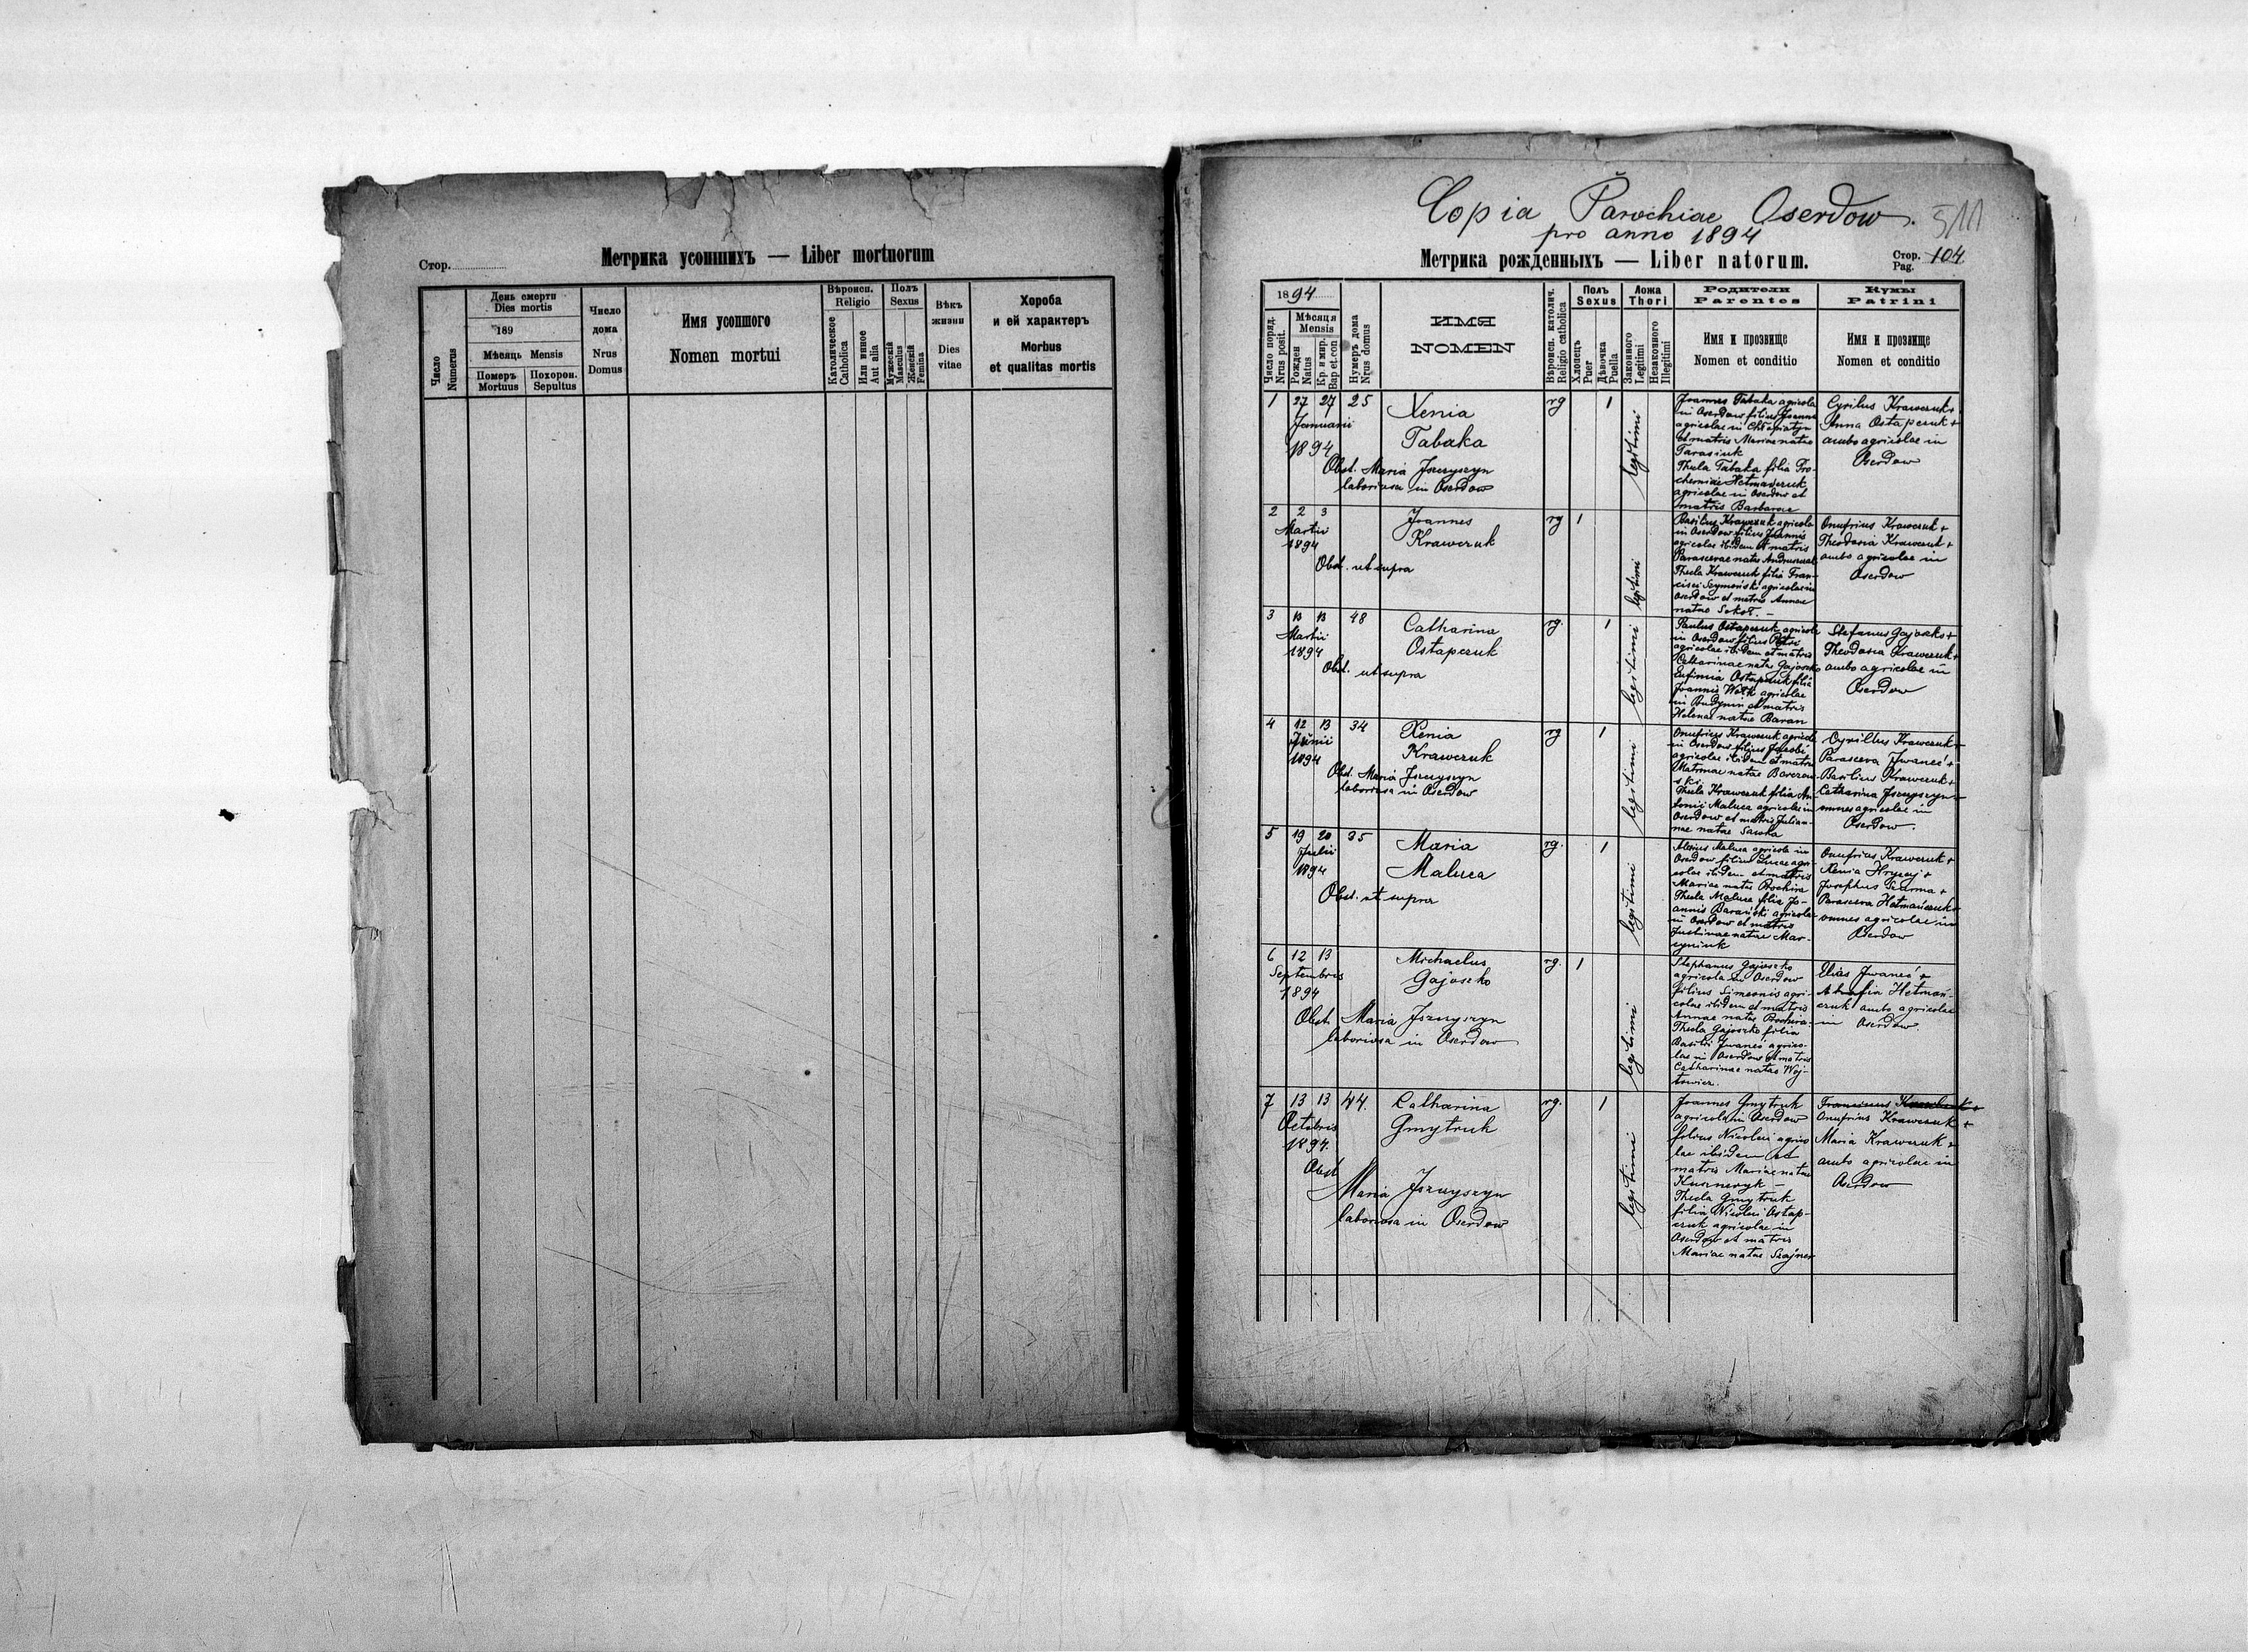 Стор.
Метрика усопшихъ — Liber mortuorum
Число
Numerus
День смерти
Dies mortis
189
Мѣсяць Mensis
Померъ
Mortuus
Похорон.
Sepultus
Число
дома
Nrus
Domus
Имя усопшого
Nomen mortui
Вѣроисп.
Religio
Католическое
Catholica
Или инное
Aut alia
Полъ
Sexus
Мужескій
Masculus
Женскій
Femina
Вѣкъ
жизни
Dies
vitae
Хороба
и ей характеръ
Morbus
et qualitas mortis
Copia Parochiae Oserdow.
511
pro anno 1894
Метрика рожденныхъ — Liber natorum.
Стор.
Pag.
104
1894
Число поряд.
Nrus posit.
Мѣсяця
Mensis
Рожден
Natus
Кр. и мир.
Bap et con
Нумеръ дома
Nrus domus
ИМЯ
NOMEN
Вѣроисп. католич.
Religio catholica
Полъ
Sexus
Хлопецъ
Puer
Дѣвочка
Puella
Ложа
Thori
Законного
Legitimi
Незаконного
Illegitimi
Родители
Parentes
Имя и прозвище
Nomen et conditio
Кумы
Patrini
Имя и прозвище
Nomen et conditio
1 27 27 25
Januarii
1894
Xenia
Tabaka
Obst. Maria Iszczyszyn
laboriosa in Oserdow
rg 1
legitimi
Joannes Tabaka agricola
in Oserdow filius Joannis
agricolae in Chłopiatyn
et matris Mariae natae
Tarasiuk
Thecla Tabaka filia Pro-
agricolae in Oserdow et
matris Barbarae
Cyrilus Krawczuk +
Anna Ostapczuk +
ambo agricolae in
Oserdow
2 2 3
Martii
1894
Joannes
Krawczuk
Obst. ut supra
rg 1
legitimi
Basilius Krawczuk agricola
in Oserdow filius Joannis
agricolae ibidem et matris
Parascevae natae
Thecla Krawczuk filia Fran-
cisci Szymoński agricolae in
Oserdow et matris Annae
natae Sokoł. —
Onufrius Krawczuk +
Theodosia Krawczuk +
ambo agricolae in
Oserdow
3 13 13 48
Martii
1894
Catharina
Ostapczuk
Obst. ut supra
rg. 1
legitimi
Paulus Ostapczuk agricola
in Oserdow filius Petri
agricolae ibidem et matris
Catharinae natae Gajoszko
Eufimia Ostapczuk filia
Joannis Wołk agricolae
in Budynin et matris
Helenae natae Baran
Stefanus Gajoszko +
Theodosia Krawczuk +
ambo agricolae in
Oserdow
4 12 13 34
Junii
1894
Xenia
Krawczuk
Obst. Maria Iszczyszyn
laboriosa in Oserdow
rg 1
legitimi
Onufrius Krawczuk agricola
in Oserdow filius Jacobi
agricolae ibidem et matris
Matronae natae
Thecla Krawczuk filia An-
tonii Maluca agricolae in
Oserdow et matris Julian-
nae natae Sawka
Cyrillus Krawczuk +
Parasceva Iwaneć +
Basilius Krawczuk +
Catharina Iszczyszyn +
omnes agricolae in
Oserdow.
5 19 20 35
Julii
1894
Maria
Maluca
Obst. ut supra
rg. 1
legitimi
Alexius Maluca agricola in
Oserdow filius Lucae agri-
colae ibidem et matris
Mariae natae Bochira
Thecla Maluca filia Jo-
annis Barański agricolae
in Oserdow et matris
Justinae natae Mar-
cyniuk
Onufrius Krawczuk +
Xenia Hrycaj +
Josephus Szarma +
Parasceva Hetmańczuk +
omnes agricolae in
Oserdow
6 12 13
Septembris
1894
Michaelus
Gajoszko
Obst. Maria Iszczyszyn
laboriosa in Oserdow
rg. 1
legitimi
Stephanus Gajoszko
agricola in Oserdow
filius Simeonis agri-
colae ibidem et matris
Annae natae Bochira
Thecla Gajoszko filia
Basilii Iwaneć agrico-
lae in Oserdow et matris
Catharinae natae Woj-
towicz.
Elias Iwaneć +
Hetmań-
czuk ambo agricolae
in Oserdow
7 13 13 44.
Octobris
1894.
Catharina
Gmytruk
Obst
Maria Iszczyszyn
laboriosa in Oserdow
rg. 1
legitimi
Joannes Gmytruk
agricola in Oserdow
filius Nicolai agrico
lae ibidem et
matris Mariae natae
Kuszneryk —
Thecla Gmytruk
filia Nicolai Ostap-
czuk agricolae in
Oserdow et matris
Mariae natae Szajner
Franciscus
Onufrius Krawczuk +
Maria Krawczuk +
ambo agricolae in
Oserdow